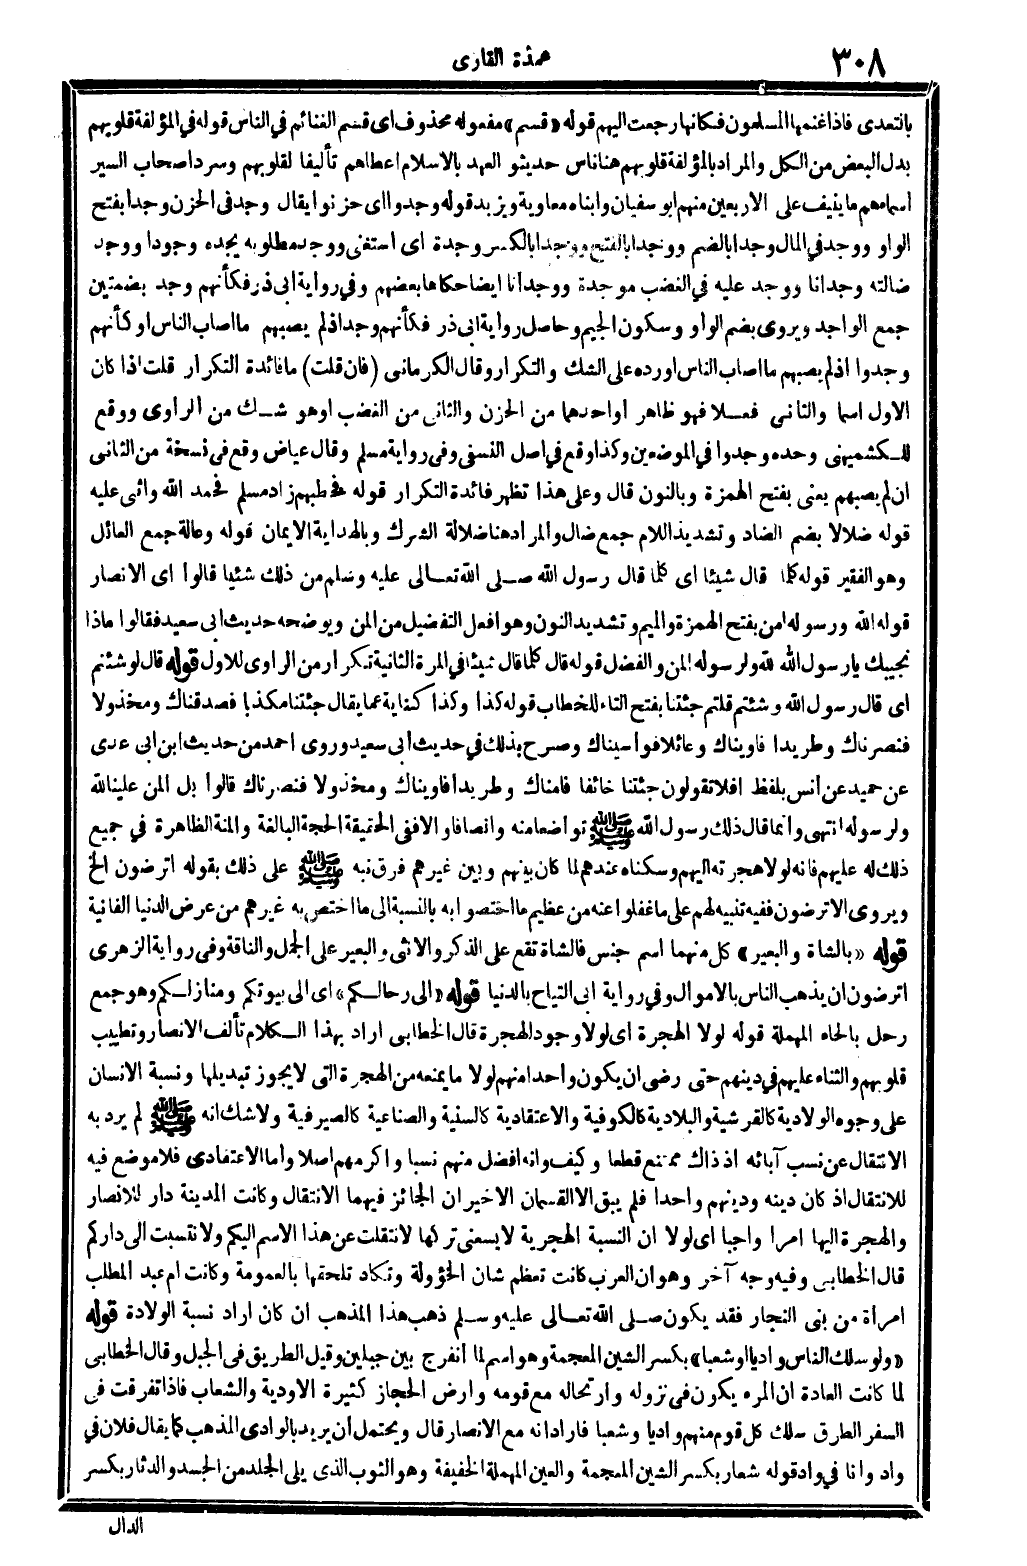 ٣٠٨
عمدة القارى
بالتعدى فاذا غنمها المسلمون فكانها رجعت اليهم قوله «قسم» مفعوله محذوف اى قسم الغنائم في الناس قوله في المؤلفة قلوبهم
بدل البعض من الكل والمراد بالمؤلفة قلوبهم هنا ناس حديثو العهد بالاسلام اعطاهم تأليفا لقلوبهم وسرد اصحاب السير
اسماءهم ما ينيف على الاربعين منهم ابو سفيان وابناه معاوية ويزيد قوله وجدوا اى حزنوا يقال وجد فى الحزن وجدا بفتح
الواو ووجد في المال وجدا بالضم ووجدا بالفتح ووجدا بالكسر وجدة اى استغنى ووجد مطلوبه يجده وجودا ووجد
ضالته وجدانا ووجد عليه في الغضب موجدة ووجدانا ايضا حكاها بعضهم وفي رواية ابى ذر فكأنهم وجد بضمتين
جمع الواجد ويروى بضم الواو وسكون الجيم وحاصل رواية ابى ذر فكأنهم وجد اذ لم يصبهم ما اصاب الناس او كأنهم
وجدوا اذ لم يصبهم ما اصاب الناس اورده على الشك والتكرار وقال الكرمانى (فان قلت) ما فائدة التكرار قلت اذا كان
الاول اسما والثانى فعلا فهو ظاهر او احدهما من الحزن والثانى من الغضب او هو شك من الراوى ووقع
للكشميهنى وحده وجدوا في الموضعين وكذا وقع في اصل النسفى وفى رواية مسلم وقال عياض وقع فى نسخة من الثانى
ان لم يصبهم يعنى بفتح الهمزة وبالنون قال وعلى هذا تظهر فائدة التكرار قوله فخطبهم زاد مسلم فحمد الله واثنى عليه
قوله ضلالا بضم الضاد وتشديد اللام جمع ضال والمراد هنا ضلالة الشرك وبالهداية الايمان قوله وعالة جمع العائل
وهو الفقير قوله كلما قال شيئا اى كلما قال رسول الله صلى الله تعالى عليه وسلم من ذلك شئيا قالوا اى الانصار
قوله الله ورسوله امن بفتح الهمزة والميم وتشديد النون وهو افعل التفضيل من المن ويوضحه حديث ابى سعيد فقالوا ماذا
نجيبك يا رسول الله لله ولرسوله المن والفضل قوله قال كلما قال شيئا في المرة الثانية تكرار من الراوى للاول قوله قال لو شئتم
اى قال رسول الله وشئتم قلتم جئتنا بفتح التاء للخطاب قوله كذا وكذا كناية عما يقال جئتنا مكذبا فصدقناك ومخذولا
فنصرناك وطريدا فآويناك وعائلا فواسيناك وصرح بذلك في حديث أبى سعيد وروى احمد من حديث ابن ابى عدى
عن حميد عن أنس بلفظ افلا تقولون جئتنا خائفا فامناك وطريدا فاويناك ومخذولا فنصرناك قالوا بل المن علينا لله
ولرسوله انتهى وانما قال ذلك رسول الله ﷺ تواضعا منه وانصافا والا ففى الحقيقة الحجة البالغة والمنة الظاهرة في جميع
ذلك له عليهم فانه لولا هجرته اليهم وسكناه عندهم لما كان بينهم وبين غيرهم فرق نبه ﷺ على ذلك بقوله اترضون الخ
ويروى الا ترضون ففيه تنبيه لهم على ما غفلوا عنه من عظيم ما اختصوا به بالنسبة الى ما اختص به غيرهم من عرض الدنيا الفانية
قوله «بالشاة والبعير» كل منهما اسم جنس فالشاة تقع على الذكر والانثى والبعير على الجمل والناقة وفى رواية الزهرى
اترضون ان يذهب الناس بالاموال وفي رواية ابى التياح بالدنيا قوله «الى رحالكم» اى الى بيوتكم ومنازلكم وهو جمع
رحل بالحاء المهملة قوله لولا الهجرة اى لولا وجود الهجرة قال الخطابى اراد بهذا الكلام تألف الانصار وتطييب
قلوبهم والثناء عليهم في دينهم حتى رضى ان يكون واحدا منهم لولا ما يمنعه من الهجرة التى لا يجوز تبديلها ونسبة الانسان
على وجوه الولادية كالقرشية والبلادية كالكوفية والاعتقادية كالسنية والصناعية كالصيرفية ولا شك انه ﷺ لم يرد به
الانتقال عن نسب آبائه اذ ذاك ممتنع قطعا وكيف وانه افضل منهم نسبا واكرمهم اصلا واما الاعتقادى فلا موضع فيه
للانتقال اذ كان دينه ودينهم واحدا فلم يبق الا القسمان الاخيران الجائز فيهما الانتقال وكانت المدينة دار للانصار
والهجرة اليها امرا واجبا اى لولا ان النسبة الهجرية لا يسعنى تركها لانتقلت عن هذا الاسم اليكم ولانتسبت الى داركم
قال الخطابى وفيه وجه آخر وهو ان العرب كانت تعظم شان الخؤولة وتكاد تلحقها بالعمومة وكانت ام عبد المطلب
امرأة من بنى النجار فقد يكون صلى الله تعالى عليه وسلم ذهب هذا المذهب ان كان اراد نسبة الولادة قوله
«ولو سلك الناس واديا او شعبا» بكسر الشين المعجمة وهو اسم لما انفرج بين جبلين وقيل الطريق فى الجبل وقال الخطابى
لما كانت العادة ان المرء يكون فى نزوله وارتحاله مع قومه وارض الحجاز كثيرة الاودية والشعاب فاذا تفرقت فى
السفر الطرق سلك كل قوم منهم واديا وشعبا فاراد انه مع الانصار قال ويحتمل أن يريد بالوادى المذهب كما يقال فلان في
واد وانا في واد قوله شعار بكسر الشين المعجمة والعين المهملة الخفيفة وهو الثوب الذى يلى الجلد من الجسد والدثار بكسر
الدال